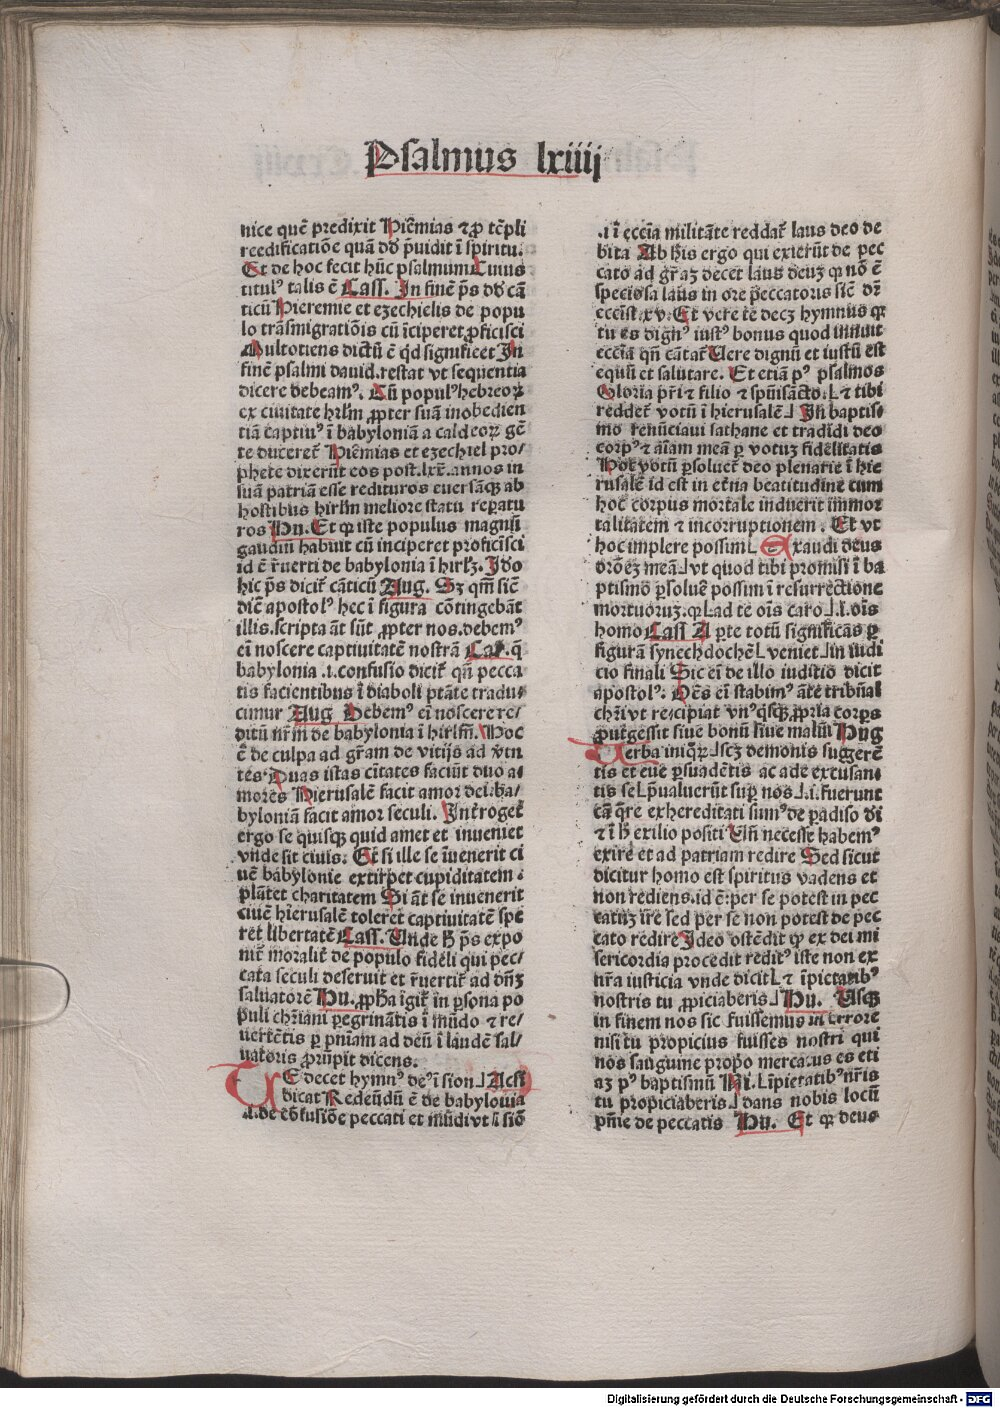 Psalmus lxiiij
nice quē predixit Hiēmias ⁊ ꝓ tēpli
reedificatiōe quā dd̄ p̄uidit ī spiritu.
Et de hoc fecit hūc psalmum Cuius
titulꝰ talis ē Cass. In finē ps̄ dd̄ cā
ticū Hieremie et ezechielis de popu
lo trāsmigratiōis cū īciperet ꝓficisci
Multotiens dictū ē qd̄ significet In
finē psalmi dauid. restat vt sequentia
dicere debeamꝰ. Cū populꝰ hebreoꝝ
ex ciuitate hrlm̄ ꝓpter suā inobedien
tiā captiuꝰ ī babyloniā a caldeoꝝ gē
te duceret᷑ Hiēmias et ezechiel pro/
phete dixerūt eos post .lxx. annos in
suā patriam esse redituros euersāqꝫ ab
hostibus hirlm̄ meliore statu reꝑatu
ros Hu. Et ꝙ iste populus magnū
gaudiū habuit cū inciperet proficisci
id ē r̄uerti de babylonia ī hirlꝫ. Ido
hic ps̄ dicit᷑ cāticū Aug. Sꝫ qm̄ sic̄
dic̄ apostolꝰ hec ī figura cōtingebāt
illis. scripta āt sūt ꝓpter nos. debemꝰ
eī noscere captiuitatē nostrā Cas. q̄
babylonia .i. confusio dicit᷑ qn̄ pecca
tis facientibus ī diaboli ptāte tradu/
cimur Aug Debemꝰ eī noscere re/
ditū nr̄m de babylonia ī hirlm̄. Hoc
ē de culpa ad gr̄am de vitijs ad v̄tu
tes Duas istas ciitates faciūt duo a/
mores Hierusalē facit amor dei. ba/
byloniā facit amor seculi. Int̄roget
ergo se quisqꝫ quid amet et inueniet
vnde sit ciuis. Et si ille se īuenerit ci
uē babylonie extirpet cupiditatem.
plātet charitatem Si āt se inuenerit
ciuē hierusalē toleret captiuitatē spe
ret libertatē Cass. Unde h̄ ps̄ expo
nit᷑ moralit᷑ de populo fideli qui pec/
cata seculi deseruit et r̄uertit᷑ ad dn̄ꝫ
saluatorē Hu. ꝓph̄a igit᷑ in ꝑsona po
puli chr̄iani ꝑegrinātis ī mūdo ⁊ re/
uertētis ꝑ pniam ad deū ī laudē sal/
uatoris ꝓrūpit dicens.
TE decet hymnꝰ deꝰ ī sion Acsi
dicat Redeūdū ē de babylonia
.i. de cōfusiōe peccati et mūdi vt ī siō
.i ī ecc̄ia militāte reddat᷑ laus deo de
bita Ab his ergo qui exierūt de pec
cato ad gr̄aꝫ decet laus deuꝫ ꝙ nō ē
speciosa laus in ore peccatoris sic̄ dr̄
ecc̄ist. xv. Et vere te decꝫ hymnus ꝙ
tu es dignꝰ iustꝰ bonus quod innuit
ecc̄ia qn̄ cātat Uere dignū et iustū est
equū et salutare. Et etiā pꝰ psalmos
Gloria pr̄i ⁊ filio ⁊ sp̄uisācto. ⁊ tibi
reddet᷑ votū ī hierusalē In baptis/
mo renūciaui sathane et tradidi deo
corpꝰ ⁊ aīam meā ꝑ votuꝫ fidelitatis
Hoc votū ꝑsoluet᷑ deo plenarie ī hie
rusalē id est in et̄na beatitudine cum
hoc corpus mortale induerit immor
talitatem ⁊ incorruptionem. Et vt
hoc implere possim Exaudi deus
orōeꝫ meā vt quod tibi promisi ī ba
ptismo ꝑsoluē possim ī resurrectione
mortuoruꝫ. ꝙ ad te oīs caro .i. oīs
homo Cass A ꝑte totū significās ꝑ
figurā synechdochē veniet in iudi
cio finali Sic eī de illo iuditio dicit
apostolꝰ. Oēs eī stabimꝰ āte tribūal
chr̄i vt recipiat vnꝰqisqꝫ ꝓpria corpis
ꝓut gessit siue bonū siue malū Hug
Uerba iniqꝝ scꝫ demonis suggerē
tis et eue ꝑsuadētis ac ade excusan
tis se p̄ualuerūt sup nos .i. fuerunt
cā qr̄e exhereditati sumꝰ de ꝑadiso di
⁊ ī h̄ exilio positi Em̄ necesse habemꝰ
exire et ad patriam redire Sed sicut
dicitur homo est spiritus vadens et
non rediens. id ē: per se potest in pec
catuꝫ ire sed per se non potest de pec
cato redire Ideo ostēdit ꝙ ex dei mi
sericordia procedit reditꝰ iste non ex
nr̄a iusticia vnde dicit ⁊ īpietatibꝰ
nostris tu ꝓpiciaberis Hu. Usqꝫ
in finem nos sic fuissemus in errore
nisi tu propicius fuisses nostri qui
nos sanguine propo mercatus es eti
aꝫ pꝰ baptismū Ni. Īpietatibꝰ nr̄is
tu propiciaberis dans nobis locū
pn̄ie de peccatis Hu. Et ꝙ deus
Digitalisierung gefördert durch die Deutsche Forschungsgemeinschaft - DFG